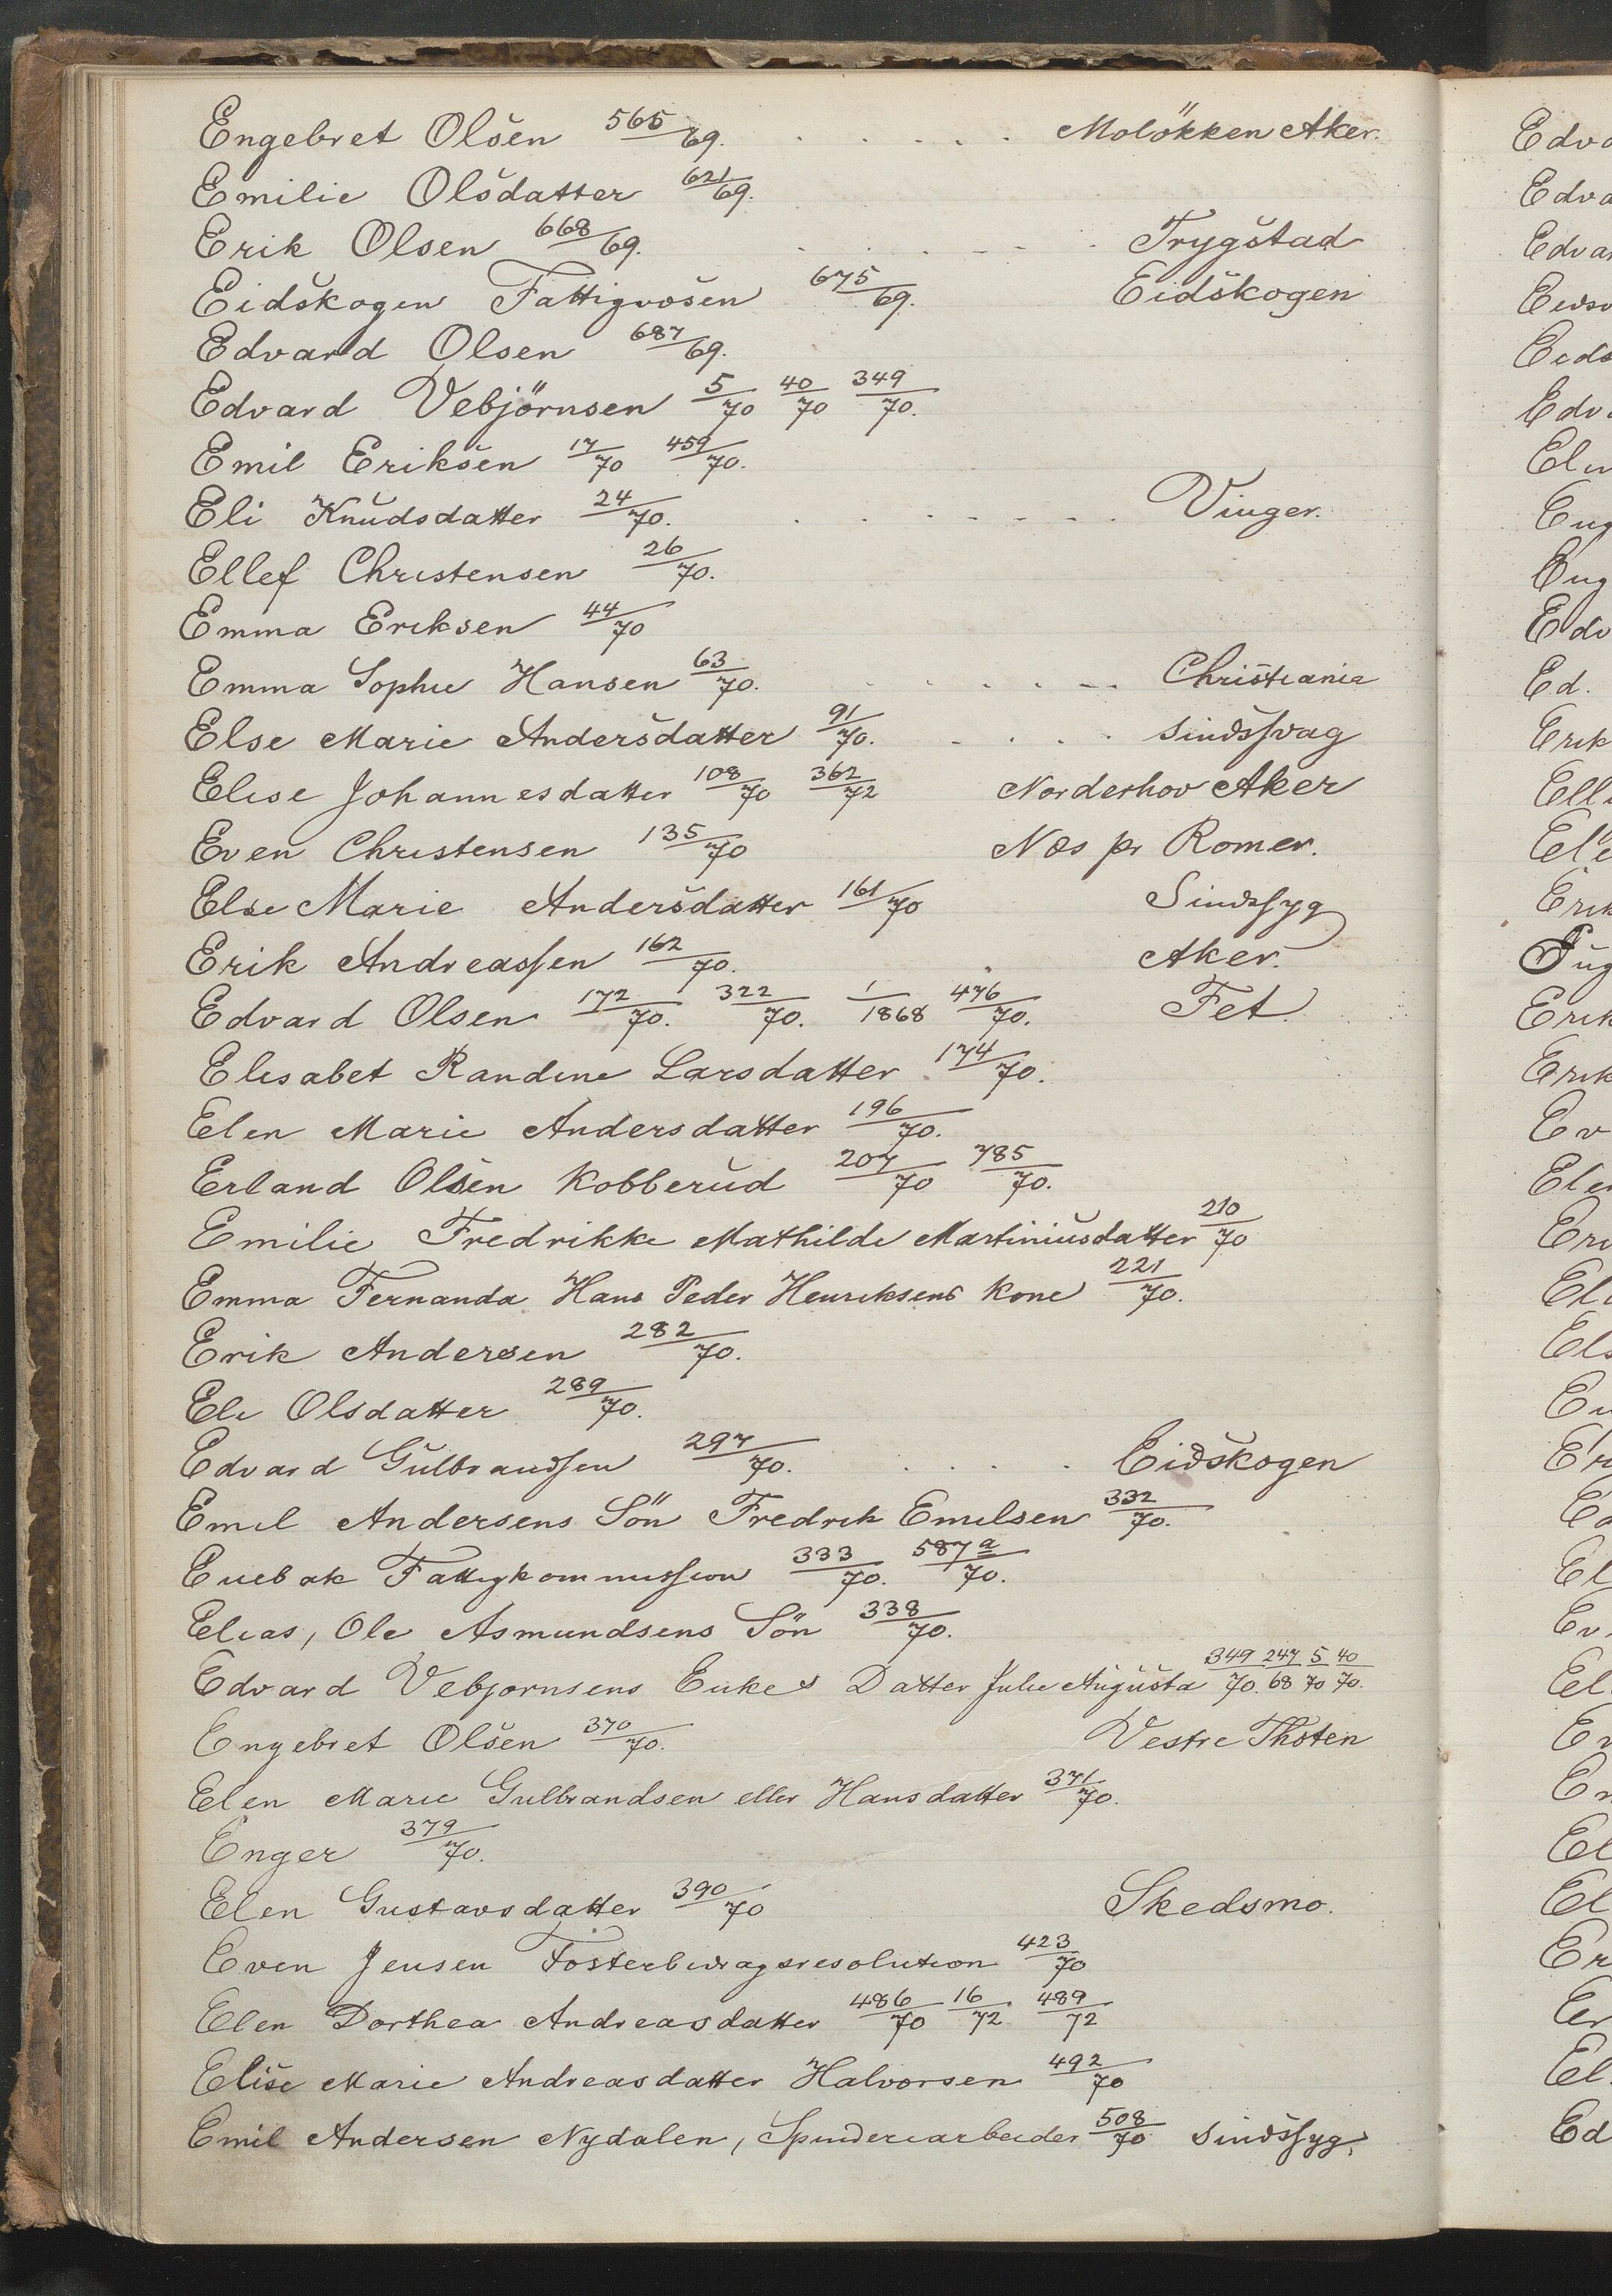 Engebret Olsen 565/69. . . . . . Molökken Aker.
Emilie Olsdatter 621/69.
Erik Olsen 668/69. . . . . . Trygstad
Eidskogen Fattigvæsen 675/69. Eidskogen
Edvard Olsen 687/69.
Edvard Vebjörnsen 5/70 40/70 349/70.
Emil Eriksen 17/70 459/70.
Eli Knudsdatter 24/70. . . . . . . Vinger.
Ellef Christensen 26/70.
Emma Eriksen 44/70
Emma Sophie Hansen 63/70. . . . . . Christiania
Else Marie Andersdatter 91/70. . . . . sindssvag
Elise Johannesdatter 108/70 362/72 Norderhov Aker
Even Christensen 135/70 Næs pr Romer.
Else Marie Andersdatter 161/70 Sindssyg
Erik Andreassen 162/70. Aker.
Edvard Olsen 172/70. 322/70. 1/1868 476/70. Fet.
Elisabet Randine Larsdatter 174/70.
Elen Marie Andersdatter 196/70.
Erland Olsen Kobberud 207/70 785/70.
Emilie Fredrikke Mathilde Martiniusdatter 210/70
Emma Fernanda Hans Peder Henriksens Kone 221/70.
Erik Andersen 282/70.
Eli Olsdatter 289/70.
Edvard Gulbrandsen 297/70. . . . . Eidskogen
Emil Andersens Sön Fredrik Emilsen 332/70.
Enebak Fattigkommission 333/70. 587a/70.
Elias, Ole Asmundsens Sön 338/70.
Edvard Vebjornsens Enkes Datter Julie Augusta 349/70. 247/68 5/70 40/70.
Engebret Olsen 370/70. Vestre Thoten
Elen Marie Gulbrandsen eller Hansdatter 371/70.
Enger 379/70.
Elen Gustavsdatter 390/70 Skedsmo.
Even Jensen Fosterbidragsresolution 423/70
Elen Dorthea Andreasdatter 486/70 16/72 489/72
Elise Marie Andreasdatter Halvorsen 492/70
Emil Andersen Nydalen, Spinderiarbeider 508/70 sindssyg.